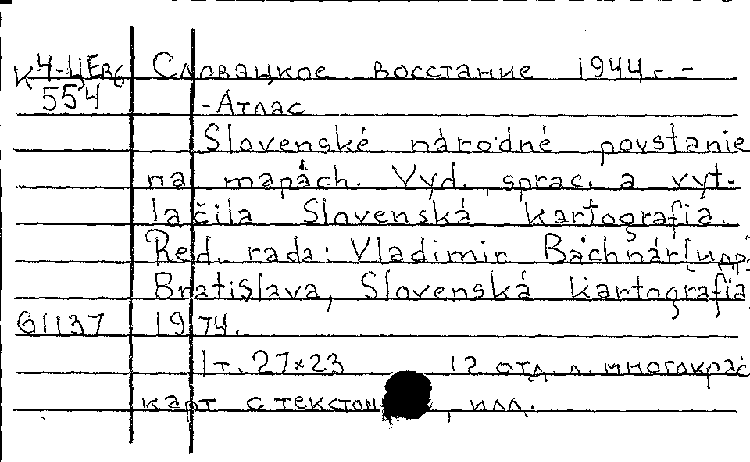 К 4-ЦЕв6 Словацкое восстание 1944 г. -
554 -Атлас
Slovenské národné povstanie
na mapách. Vyd., sprac. a vyt-
lačila Slovenská kartografia.
Red. rada: Vladimir Bachnár [и др.
Bratislava, Slovenská kartografia
61137 1974.
1 т. 27×23 12 отд. л. многокрас
карт с текстом, илл.